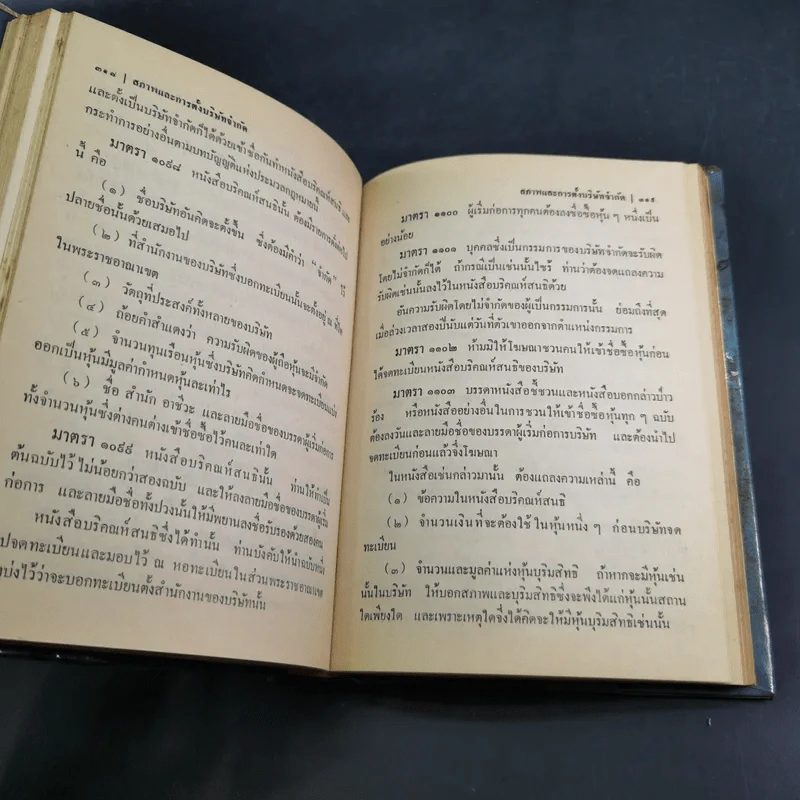 ๓๑๘ | สภาพและการตั้งบริษัทจำกัด
และตั้งเป็นบริษัทจำกัดก็ได้ด้วยเข้าชื่อกันทำหนังสือบริคณห์สนธิ และ
กระทำการอย่างอื่นตามบทบัญญัติแห่งประมวลกฎหมายนี้
มาตรา ๑๐๙๘ หนังสือบริคณห์สนธินั้น ต้องมีรายการดั่งต่อไป
นี้ คือ
(๑) ชื่อบริษัทอันคิดจะตั้งขึ้น ซึ่งต้องมีคำว่า “จำกัด” ไว้
ปลายชื่อนั้นด้วยเสมอไป
(๒) ที่สำนักงานของบริษัทซึ่งบอกทะเบียนนั้นจะตั้งอยู่ ณ ที่ใด
ในพระราชอาณาเขต
(๓) วัตถุที่ประสงค์ทั้งหลายของบริษัท
(๔) ถ้อยคำสำแดงว่า ความรับผิดของผู้ถือหุ้นจะมีจำกัด
(๕) จำนวนทุนเรือนหุ้นซึ่งบริษัทคิดกำหนดจะจดทะเบียนแบ่ง
ออกเป็นหุ้นมีมูลค่ากำหนดหุ้นละเท่าไร
(๖) ชื่อ สำนัก อาชีวะ และลายมือชื่อของบรรดาผู้เริ่มก่อการ
ทั้งจำนวนหุ้นซึ่งต่างคนต่างเข้าชื่อซื้อไว้คนละเท่าใด
มาตรา ๑๐๙๙ หนังสือบริคณห์สนธินั้น ท่านให้ทำเป็น
ต้นฉบับไว้ ไม่น้อยกว่าสองฉบับ และให้ลงลายมือชื่อของบรรดาผู้เริ่ม
ก่อการ และลายมือชื่อทั้งปวงนั้นให้มีพยานลงชื่อรับรองด้วยสองคน
หนังสือบริคณห์สนธิซึ่งได้ทำนั้น ท่านบังคับให้นำฉบับหนึ่ง
ไปจดทะเบียนและมอบไว้ ณ หอทะเบียนในส่วนพระราชอาณาเขต
บ่งไว้ว่าจะบอกทะเบียนตั้งสำนักงานของบริษัทนั้น
สภาพและการตั้งบริษัทจำกัด | ๓๑๙
มาตรา ๑๑๐๐ ผู้เริ่มก่อการทุกคนต้องลงชื่อซื้อหุ้น ๆ หนึ่งเป็น
อย่างน้อย
มาตรา ๑๑๐๑ บุคคลซึ่งเป็นกรรมการของบริษัทจำกัดจะรับผิด
โดยไม่จำกัดก็ได้ ถ้ากรณีเป็นเช่นนั้นไซร้ ท่านว่าต้องจดแถลงความ
รับผิดเช่นนั้นลงไว้ในหนังสือบริคณห์สนธิด้วย
อันความรับผิดโดยไม่จำกัดของผู้เป็นกรรมการนั้น ย่อมถึงที่สุด
เมื่อล่วงเวลาสองปีนับแต่วันที่ตัวเขาออกจากตำแหน่งกรรมการ
มาตรา ๑๑๐๒ ห้ามมิให้โฆษณาชวนคนให้เข้าชื่อซื้อหุ้นก่อน
ได้จดทะเบียนหนังสือบริคณห์สนธิของบริษัท
มาตรา ๑๑๐๓ บรรดาหนังสือชี้ชวนและหนังสือบอกกล่าวป่าว
ร้อง หรือหนังสืออย่างอื่นในการชวนให้เข้าชื่อซื้อหุ้นทุก ๆ ฉบับ
ต้องลงวันและลายมือชื่อของบรรดาผู้เริ่มก่อการบริษัท และต้องนำไป
จดทะเบียนก่อนแล้วจึงโฆษณา
ในหนังสือเช่นกล่าวมานั้น ต้องแถลงความเหล่านี้ คือ
(๑) ข้อความในหนังสือบริคณห์สนธิ
(๒) จำนวนเงินที่จะต้องใช้ในหุ้นหนึ่ง ๆ ก่อนบริษัทจด
ทะเบียน
(๓) จำนวนและมูลค่าแห่งหุ้นบุริมสิทธิ ถ้าหากจะมีหุ้นเช่น
นั้นในบริษัท ให้บอกสภาพและบุริมสิทธิซึ่งจะพึงได้แก่หุ้นนั้นสถาน
ใดเพียงใด และเพราะเหตุใดจึ่งได้คิดจะให้มีหุ้นบุริมสิทธิเช่นนั้น